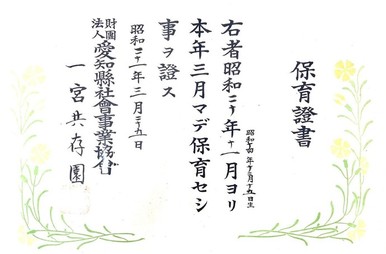 保育證書
昭和十四年十二月十五日生
右者昭和二十年十一月ヨリ
本年三月マデ保育セシ
事ヲ證ス
昭和二十一年三月二十五日
財團法人愛知縣社會事業協会
一宮共存園